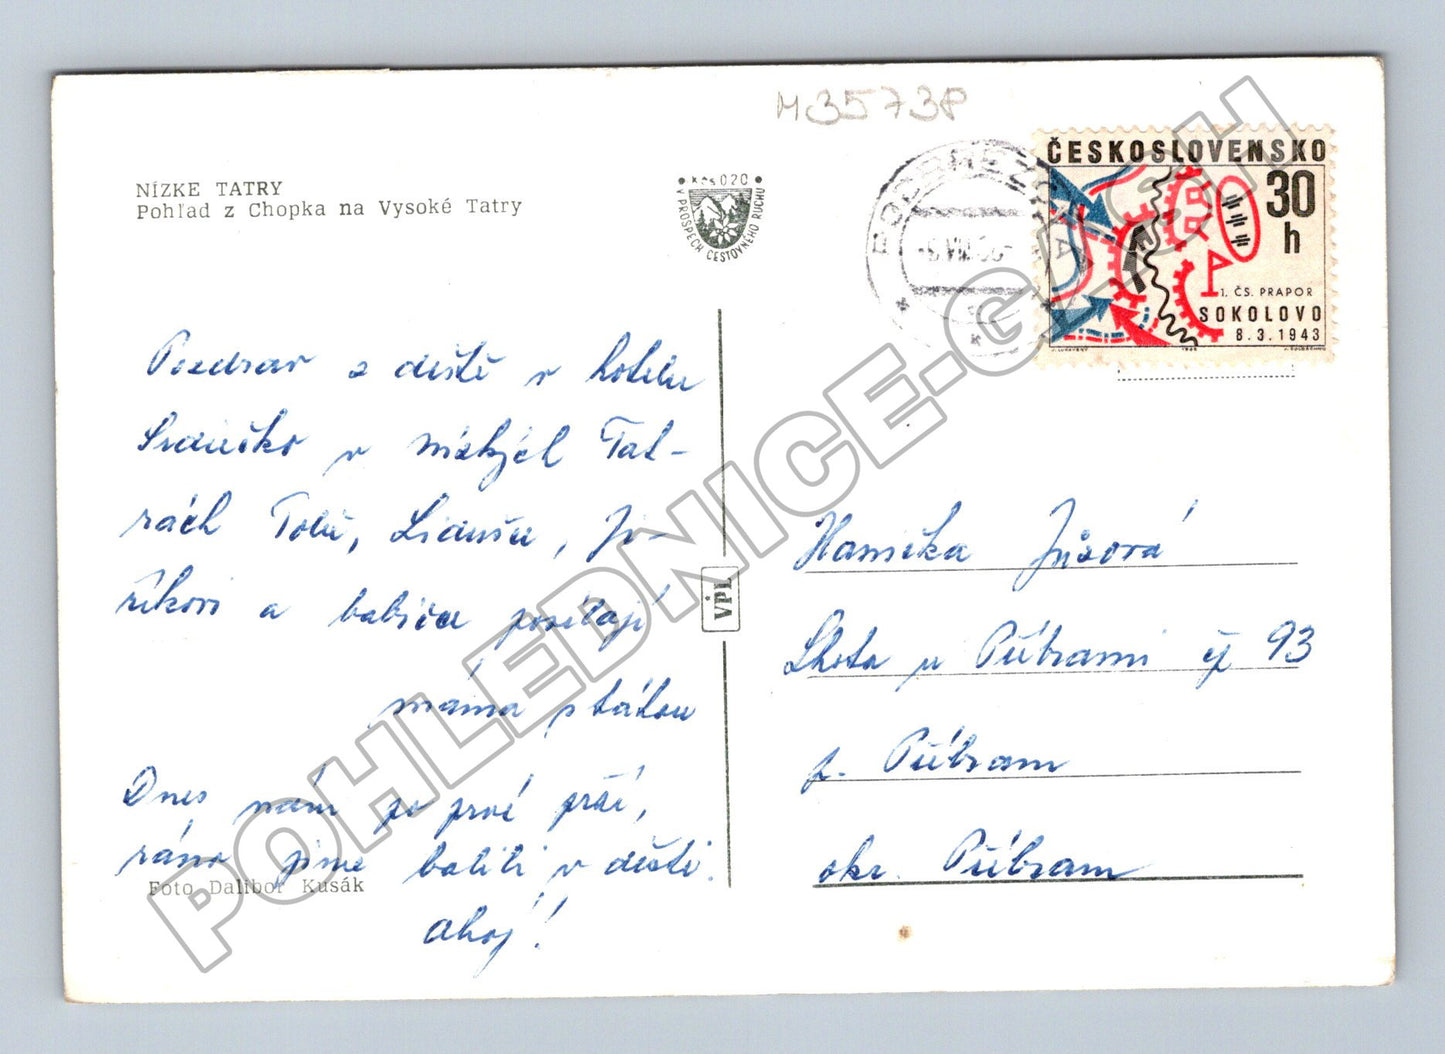 M3573P
NÍZKE TATRY
Pohľad z Chopka na Vysoké Tatry
Kčs 020
V PROSPECH CESTOVNÉHO RUCHU
PODBREZOVÁ
ČESKOSLOVENSKO
30
h
1. ČS. PRAPOR
SOKOLOVO
8.3.1943
Pozdrav z deště v hotelu
Srdiečko v nízkých Tat-
rách Tobě, Lidušce, Ji-
říkovi a babičce posílají
máma s tátou
Dnes nám po prvé prší,
ráno jsme balili v dešti.
ahoj!
Foto Dalibor Kusák
VPL
Hanička Jůzová
Lhota u Příbrami čp 93
p. Příbram
okr. Příbram
POHLEDNICE-GLSH